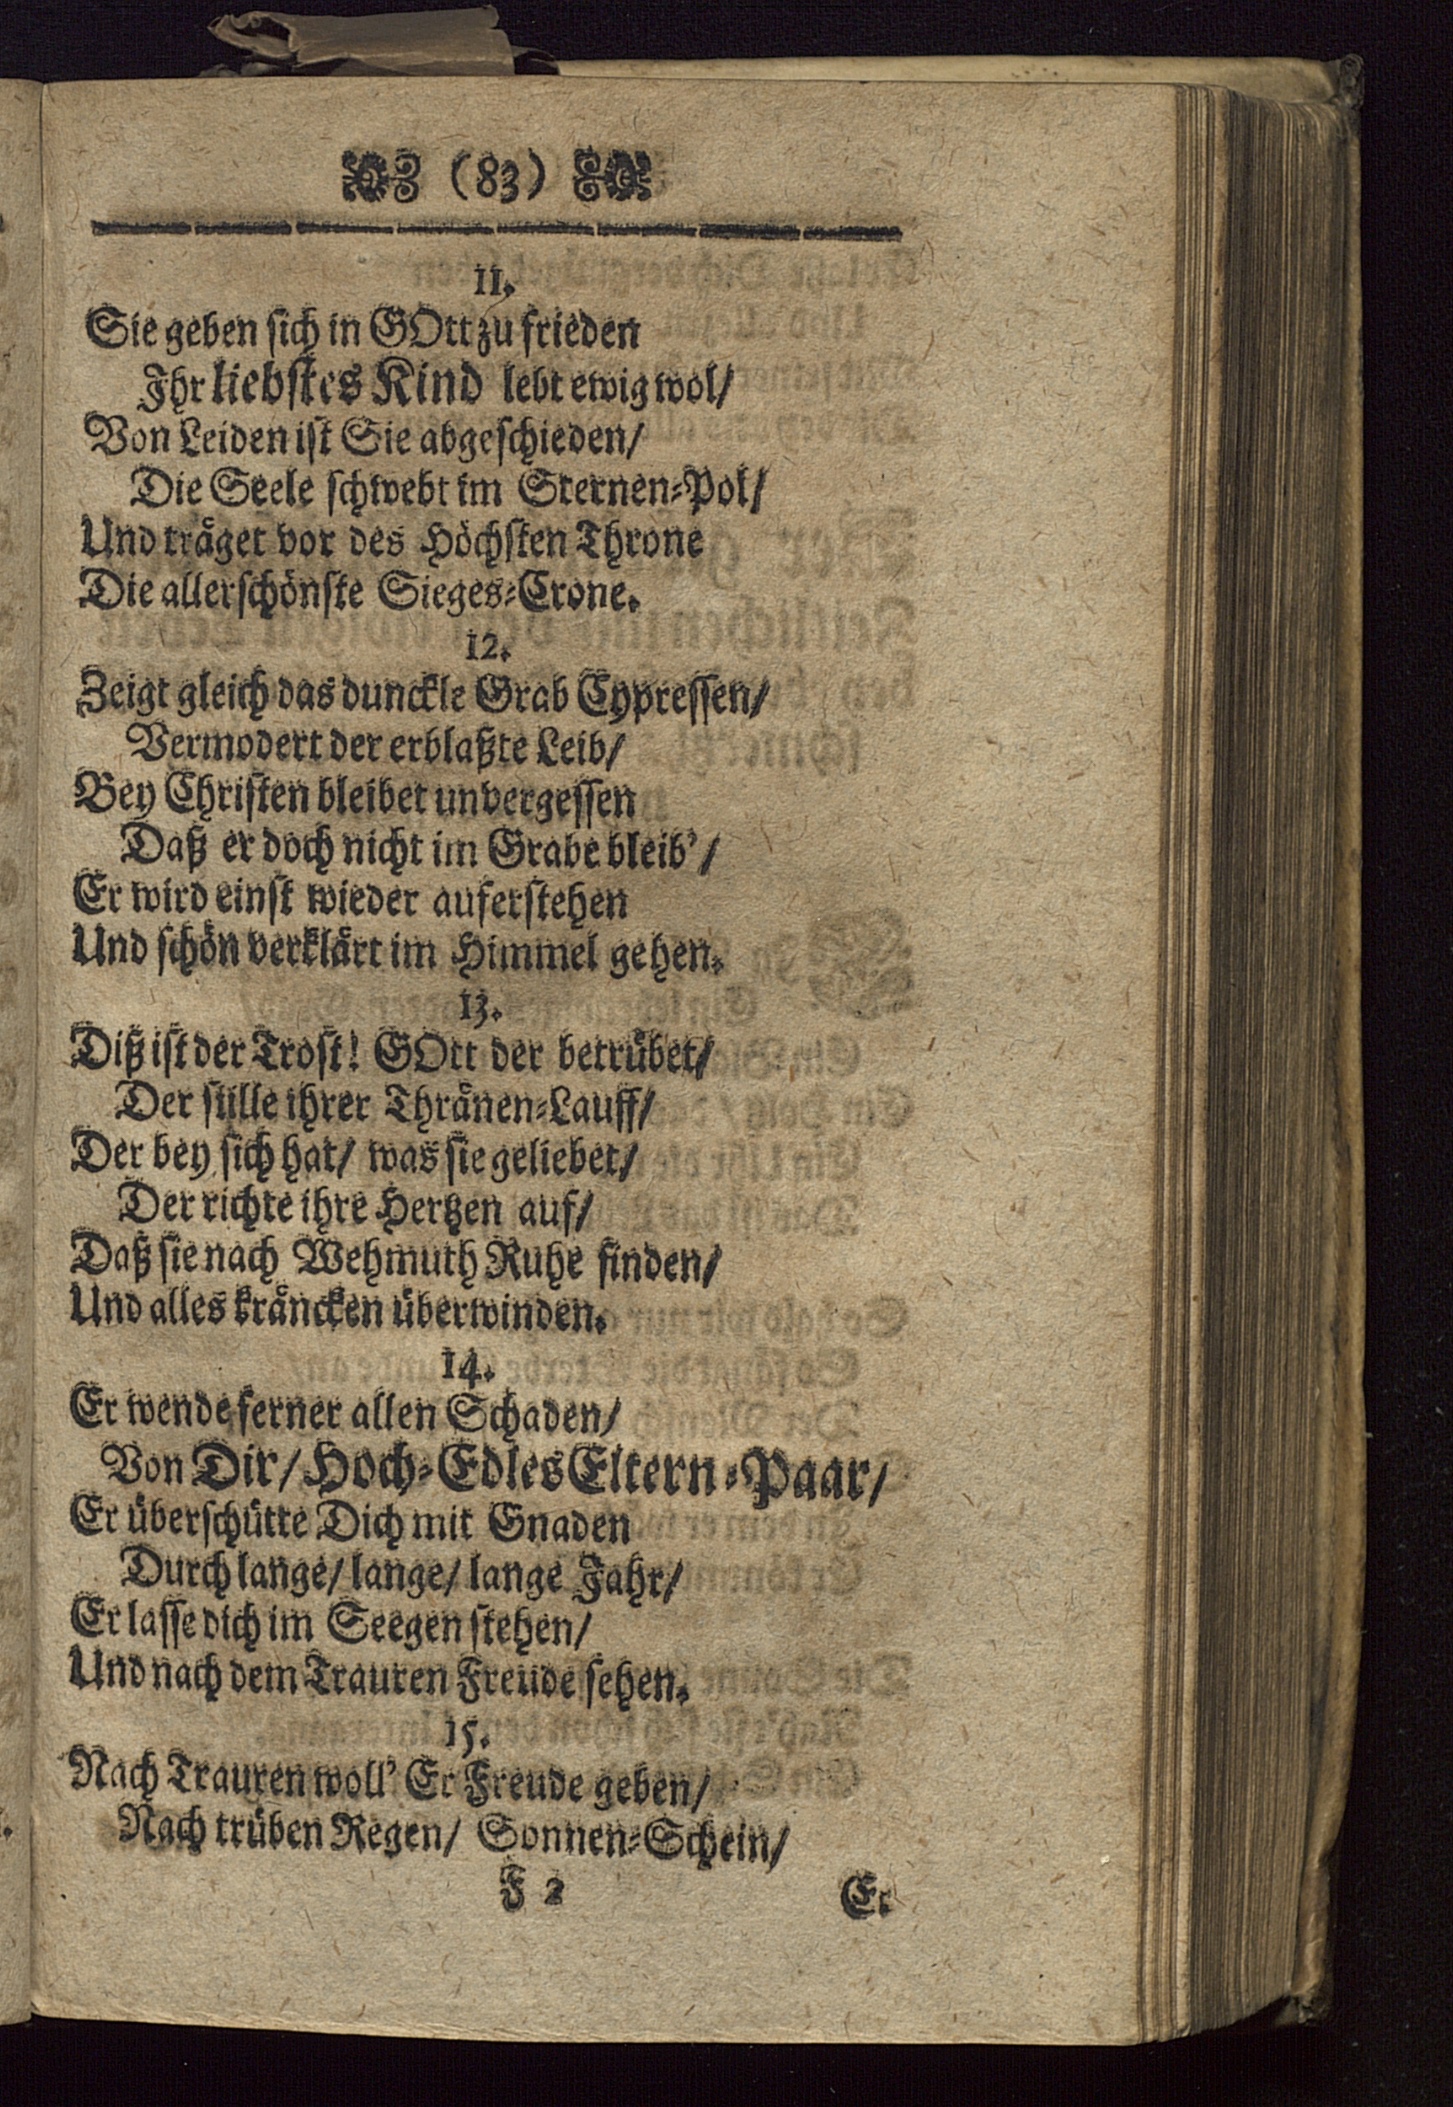 (83)
11.
Sie geben sich in GOtt zu frieden
Ihr liebstes Kind lebt ewig wol/
Von Leiden ist Sie abgeschieden/
Die Seele schwebt im Sternen-Pol/
Und träget vor des Höchsten Throne
Die allerschönste Sieges-Crone.
12.
Zeigt gleich das dunckle Grab Cypressen/
Vermodert der erblaßte Leib/
Bey Christen bleibet unvergessen
Daß er doch nicht im Grabe bleib'/
Er wird einst wieder auferstehen
Und schön verklärt im Himmel gehen.
13.
Diß ist der Trost! GOtt der betrübet/
Der stille ihrer Thränen-Lauff/
Der bey sich hat/ was sie geliebet/
Der richte ihre Hertzen auf/
Daß sie nach Wehmuth Ruhe finden/
Und alles kräncken überwinden.
14.
Er wende ferner allen Schaden/
Von Dir/ Hoch-Edles Eltern-Paar/
Er überschütte Dich mit Gnaden
Durch lange/ lange/ lange Jahr/
Er lasse dich im Seegen stehen/
Und nach dem Trauren Freude sehen.
15.
Nach Trauren woll' Er Freude geben/
Nach trüben Regen/ Sonnen-Schein/
F 2 Er